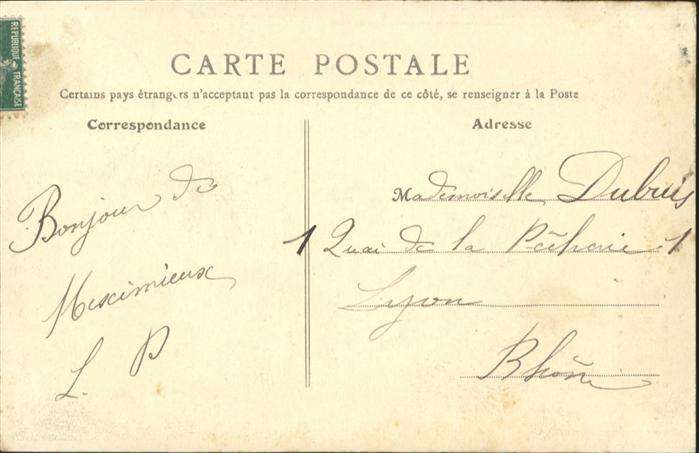 REPUBLIQUE FRANÇAISE
CARTE POSTALE
Certains pays étrangers n'acceptant pas la correspondance de ce côté, se renseigner à la Poste
Correspondance
Adresse
Bonjour de
Meximieux
L. P
Mademoiselle Dubuis
1 Quai de la Pêcherie 1
Lyon
Rhône